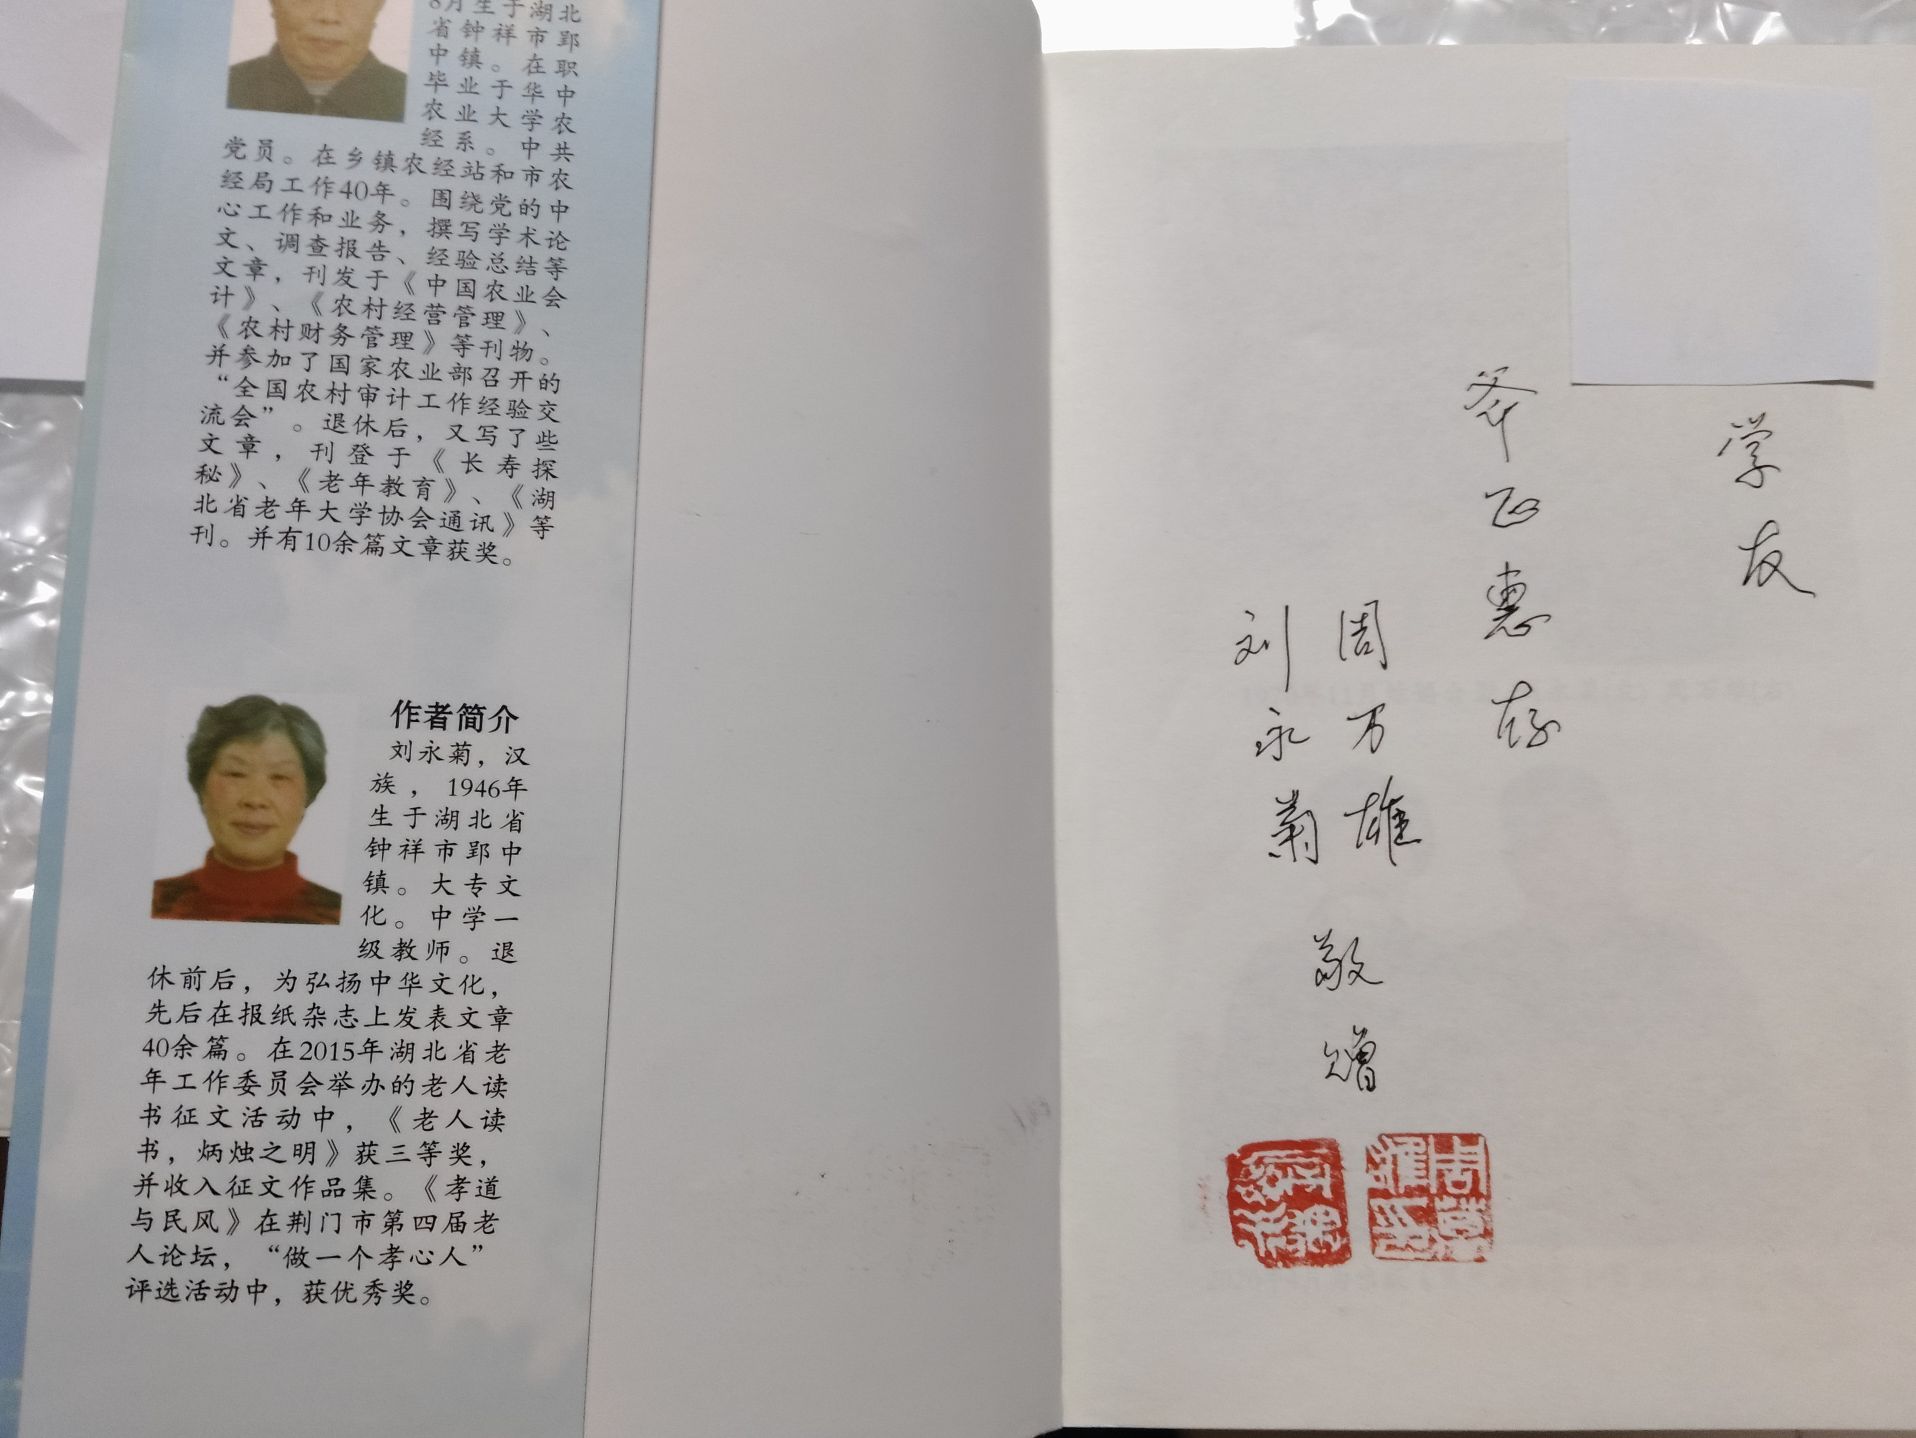 8月生于湖北
省钟祥市郢
中镇。在职
毕业于华中
农业大学农
经系。中共
党员。在乡镇农经站和市农
经局工作40年。围绕党的中
心工作和业务，撰写学术论
文、调查报告、经验总结等
文章，刊发于《中国农业会
计》、《农村经营管理》、
《农村财务管理》等刊物。
并参加了国家农业部召开的
“全国农村审计工作经验交
流会”。退休后，又写了些
文章，刊登于《长寿探
秘》、《老年教育》、《湖
北省老年大学协会通讯》等
刊。并有10余篇文章获奖。
作者简介
刘永菊，汉
族，1946年
生于湖北省
钟祥市郢中
镇。大专文
化。中学一
级教师。退
休前后，为弘扬中华文化，
先后在报纸杂志上发表文章
40余篇。在2015年湖北省老
年工作委员会举办的老人读
书征文活动中，《老人读
书，炳烛之明》获三等奖，
并收入征文作品集。《孝道
与民风》在荆门市第四届老
人论坛，“做一个孝心人”
评选活动中，获优秀奖。
学友
斧正惠存
周万雄
刘永菊
敬赠